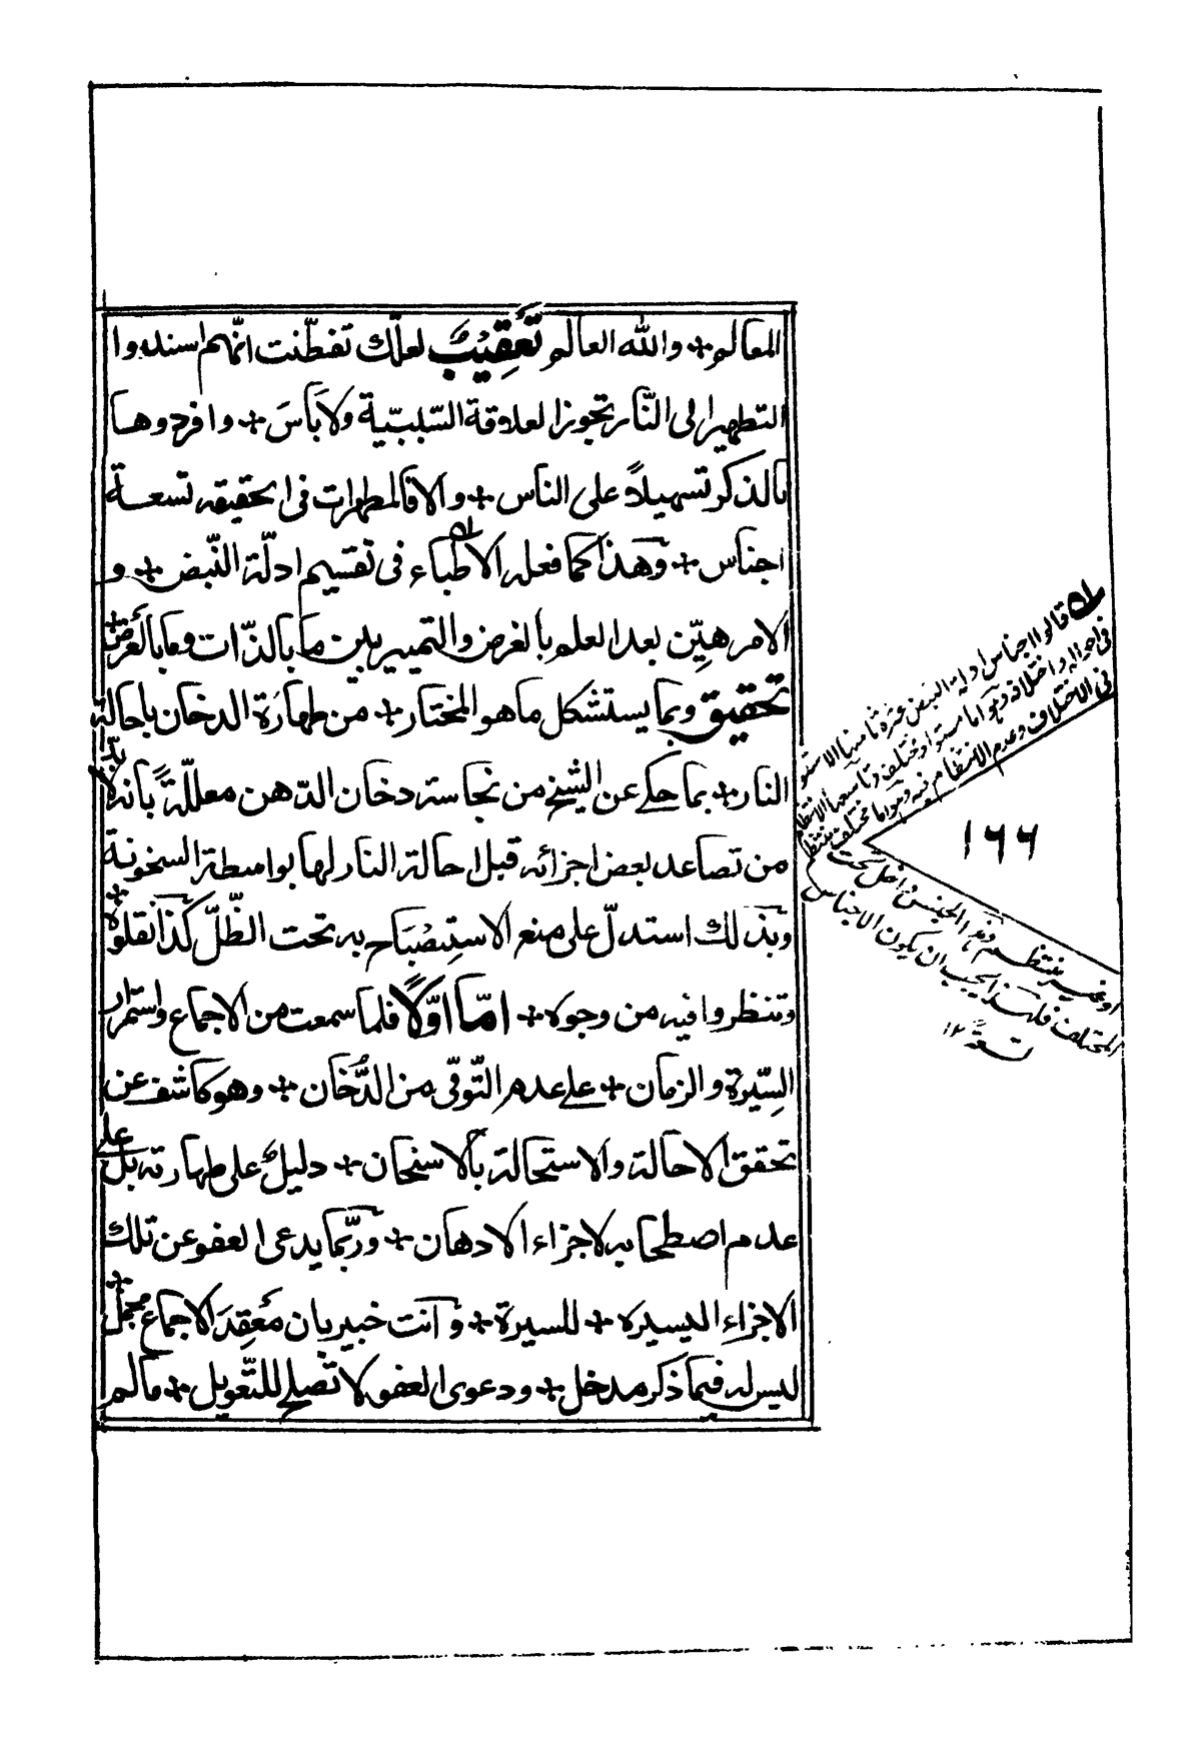 المعالم + والله العالم تَعْقِيْبٌ لعلّك تفطّنت انّهم اسندوا
التطهير الى النّار تجوز العلاقة السّلببّية ولا بَأسَ + وافردوها
بالذكر تسهيلاً على الناس + والا فالمطهرات فى الحقيقه تسعة
اجناس + وهذا كما فعله الاطباء فى تقسيم ادلّة النّبض + و
الامر هيّن بعد العلم بالغرض والتمييز بين ما بالذّات وما بالعَرَض +
تحقيق وبما يستشكل ما هو المختار + من طهارَة الدخان باحالة
النار + بما حكے عن الشيخ من نجاسة دخان الدّهن معلّلةً بانه لا بدّ
من تصاعد بعض اجزائه قبل احالة النار لها بواسطة السخونة +
وبذلك استدلّ على منع الاستِصْبَاح به تحت الظّلّ كذا نقلوهُ
وتنظروا فيه من وجوه + امّا اوّلاً فلما سمعت من الاجماع واستمرار
السّيرة والزمان + علے عدم التّوقّى من الدُّخان + وهو كاشف عن
تحقق الاحالة والاستحالة بالاسخان + دليلٌ على طهارته بل علے
عدم اصطحابه لاجزاء الادهان + وربّما يدعى العفو عن تلك
الاجزاءِ اليسيره + للسيرة + وَانت خبير بان مَعقِدَ الاجماع مجمل +
ليس له فيما ذكر مدخل + ودعوى العفو لا تصلح للتّعويل + ما لم
قالوا اجناس ادلة النبض عشرة ثامنها الاستو
فى احواله واختلافه وهو اما مستو او مختلف وتاسعها الانتظام
فى الاختلاف وعدم الانتظام فيه وهو اما مختلف منتظم
او غير منتظم وهذا الجنس داخل تحت
المختلف فلهذا يجب ان يكون الاجناس
تسعةً ١٢
١٦٦